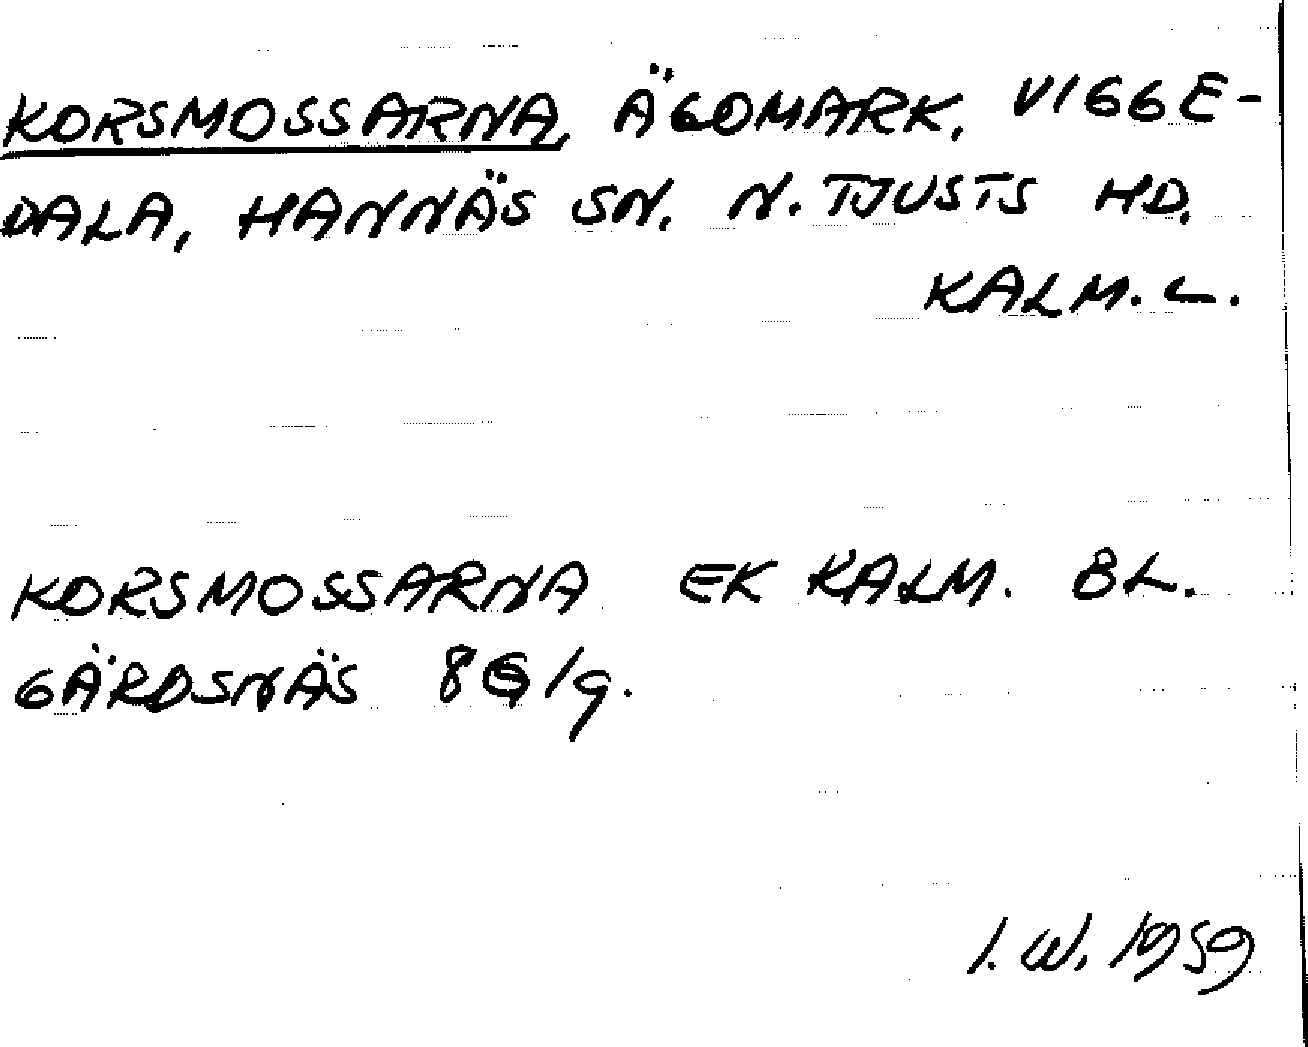 KORSMOSSARNA, ÄGOMARK, VIGGE-
DALA, HANNÄS SN. N. TJUSTS HD.
KALM. L.
KORSMOSSARNA EK KALM. BL.
GÄRDSNÄS 8G/g.
I. W. 1959